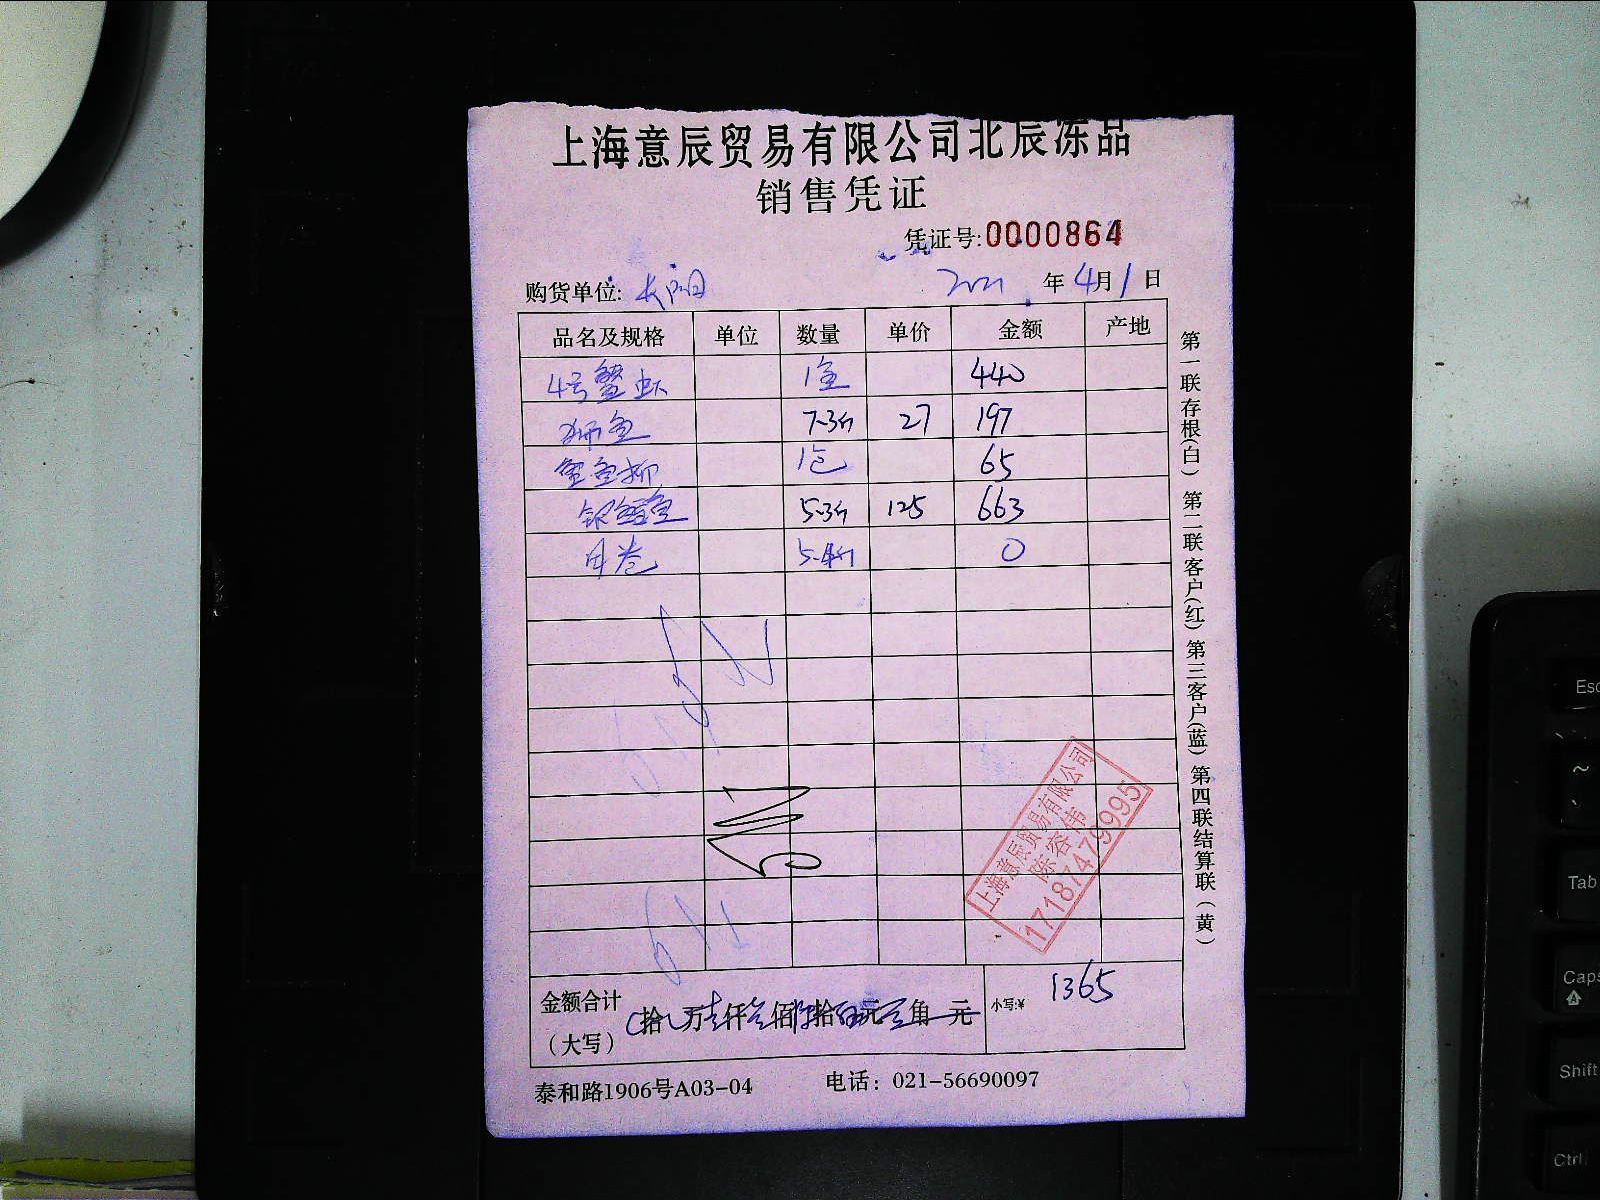 上海意辰贸易有限公司北辰冻品
销售凭证
凭证号:0000864
购货单位: 长阳 2021 年 4月 1 日
品名及规格 单位 数量 单价 金额 产地
4号蟹虾 1盒 440
鱼 7.3斤 27 197
鱼柳 1包 65
银鳕鱼 5.3斤 125 663
卷 5.4斤 0
上海意辰贸易有限公司
陈容伟
17187479995
金额合计
(大写) 拾 万壹仟叁佰陆拾伍元 角 元 小写:¥ 1365
泰和路1906号A03-04 电话: 021-56690097
第一联存根(白) 第二联客户(红) 第三客户(蓝) 第四联结算联(黄)
Esc
~
Tab
Caps
A
Shift
Ctrl